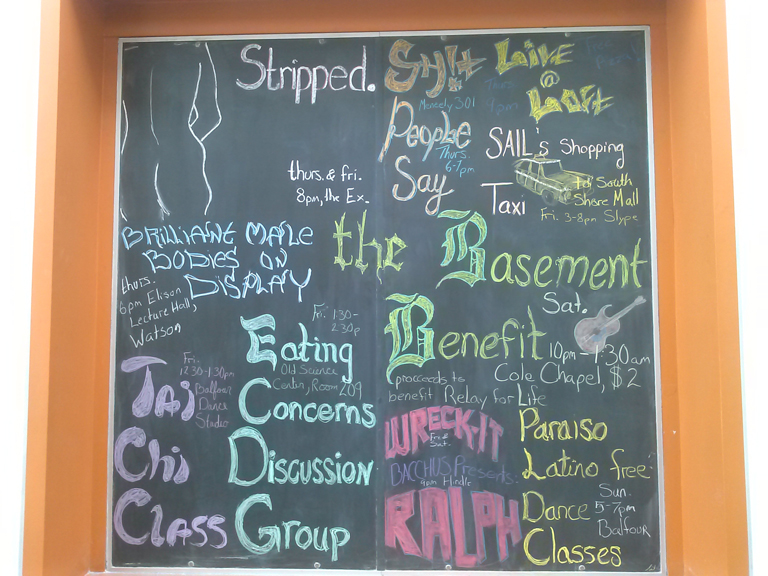 Stripped.
thurs. & fri.
8pm, the Ex.
BRILLIANT MALE
BODIES ON
DISPLAY
thurs.
6pm Ellison
Lecture Hall,
Watson
Fri.
12:30-1:30pm
Balfour
Dance
Studio
TAi
Chi
CLASS
Fri. 1:30-
2:30p
Eating
Old Science
Center, Room 209
Concerns
Discussion
Group
Sh!t
Meneely 301
People
Thurs.
6-7pm
Say
Live
@
Loft
Thurs.
9pm
Free
SAIL's Shopping
Taxi
to South
Shore Mall
Fri. 3-8pm Slype
the Basement
Sat.
Benefit
10pm-1:30am
Cole Chapel, $2
(proceeds to
benefit Relay for Life
WRECK-IT
Fri &
Sat.
BACCHUS Presents:
9pm Hindle
RALPH
Paraiso
Latino free
Dance
Sun.
5-7pm
Balfour
Classes